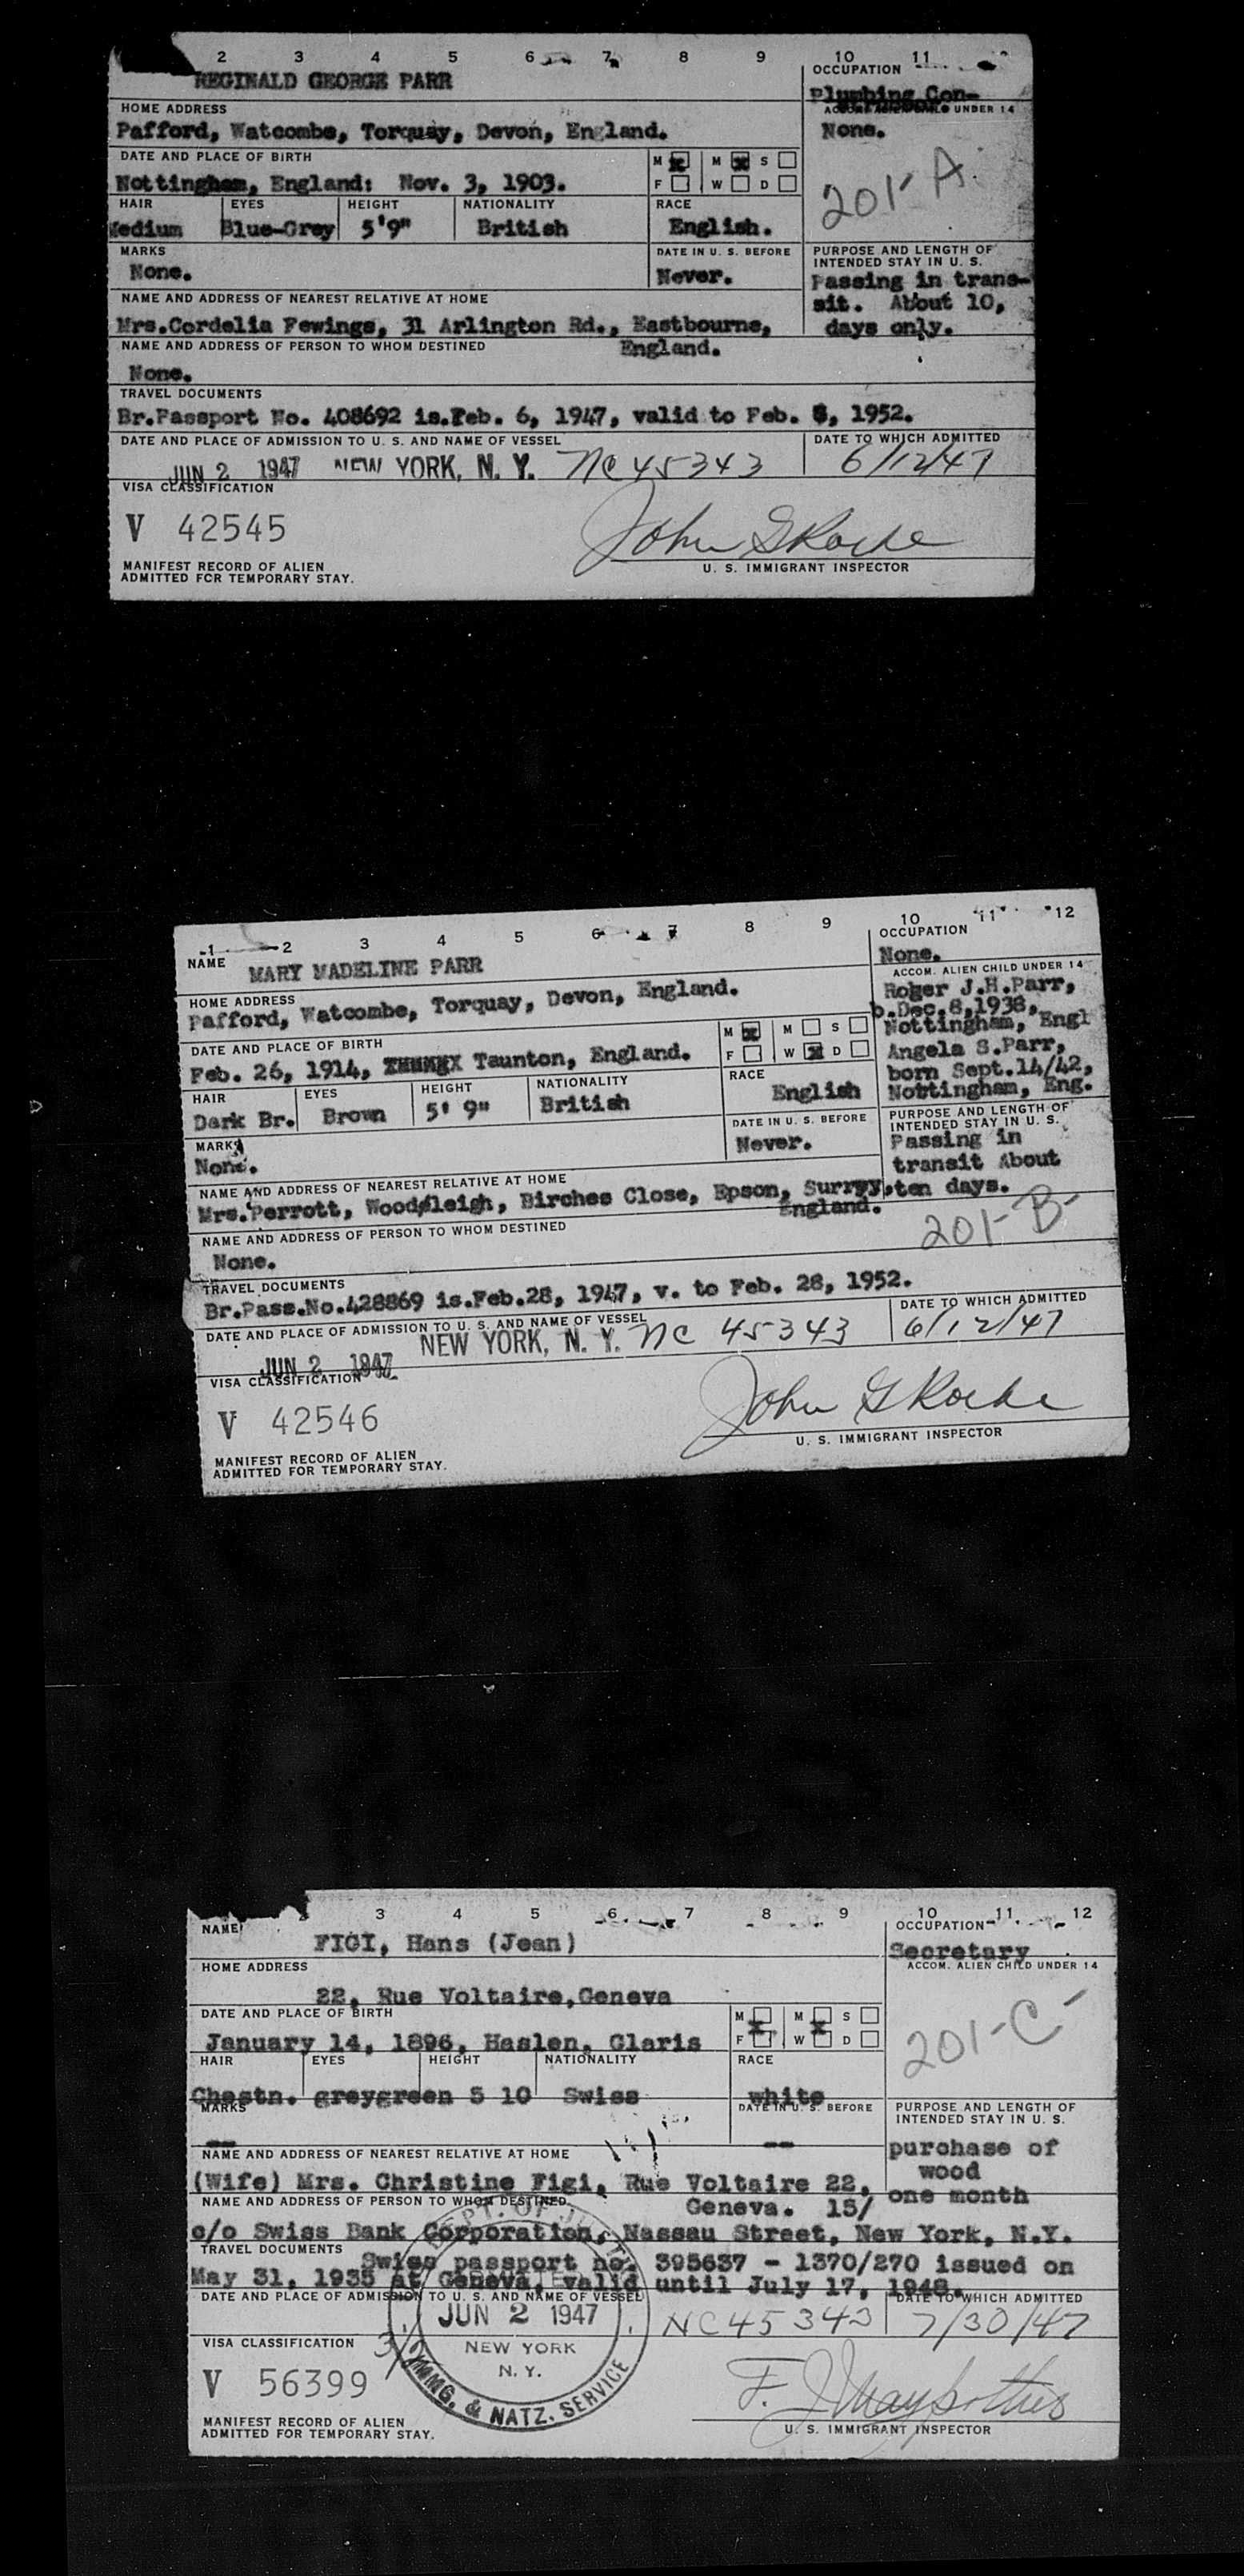 2 3 4 5 6 7 8 9 10 11
OCCUPATION
REGINALD GEORGE PARR
Plumbing Con-
HOME ADDRESS
UNDER 14
Pafford, Watcombe, Torquay, Devon, England.
None.
DATE AND PLACE OF BIRTH
M M S
Nottingham, England: Nov. 3, 1903.
F W D
201-A
HAIR EYES HEIGHT NATIONALITY RACE
Medium Blue-Grey 5'9" British English.
MARKS
DATE IN U. S. BEFORE
PURPOSE AND LENGTH OF
INTENDED STAY IN U. S.
None.
Never.
Passing in tran-
sit. About 10,
days only.
NAME AND ADDRESS OF NEAREST RELATIVE AT HOME
Mrs.Cordelia Fewings, 31 Arlington Rd., Eastbourne,
England.
NAME AND ADDRESS OF PERSON TO WHOM DESTINED
None.
TRAVEL DOCUMENTS
Br.Passport No. 408692 is.Feb. 6, 1947, valid to Feb. , 1952.
DATE AND PLACE OF ADMISSION TO U. S. AND NAME OF VESSEL
DATE TO WHICH ADMITTED
JUN 2 1947 NEW YORK, N. Y. NC 45343 6/12/47
VISA CLASSIFICATION
V 42545
John G Roche
U. S. IMMIGRANT INSPECTOR
MANIFEST RECORD OF ALIEN
ADMITTED FOR TEMPORARY STAY.
1 2 3 4 5 6 7 8 9 10 11 12
NAME
OCCUPATION
MARY MADELINE PARR
None.
HOME ADDRESS
ACCOM. ALIEN CHILD UNDER 14
Pafford, Watcombe, Torquay, Devon, England.
Roger J.H.Parr,
b.Dec.8,1938,
Nottingham, Engl
Angela S.Parr,
born Sept.14/42,
Nottingham, Eng.
DATE AND PLACE OF BIRTH
M M S
Feb. 26, 1914, Taunton, England.
F W D
HAIR EYES HEIGHT NATIONALITY RACE
Dark Br. Brown 5' 9" British English
MARKS
DATE IN U. S. BEFORE
PURPOSE AND LENGTH OF
INTENDED STAY IN U. S.
None.
Never.
Passing in
transit About
ten days.
NAME AND ADDRESS OF NEAREST RELATIVE AT HOME
Mrs.Perrott, Woodsleigh, Birches Close, Epson, Surrey,
England.
201-B
NAME AND ADDRESS OF PERSON TO WHOM DESTINED
None.
TRAVEL DOCUMENTS
Br.Pass.No.428869 is.Feb.28, 1947, v. to Feb. 28, 1952.
DATE AND PLACE OF ADMISSION TO U. S. AND NAME OF VESSEL
DATE TO WHICH ADMITTED
JUN 2 1947 NEW YORK, N. Y. NC 45343 6/12/47
VISA CLASSIFICATION
V 42546
John G Roche
U. S. IMMIGRANT INSPECTOR
MANIFEST RECORD OF ALIEN
ADMITTED FOR TEMPORARY STAY.
3 4 5 6 7 8 9 10 11 12
NAME
OCCUPATION
FIGI, Hans (Jean)
Secretary
HOME ADDRESS
ACCOM. ALIEN CHILD UNDER 14
22, Rue Voltaire,Geneva
DATE AND PLACE OF BIRTH
M M S
January 14, 1896, Haslen, Glaris
F W D
201-C
HAIR EYES HEIGHT NATIONALITY RACE
Chestn. greygreen 5 10 Swiss white
MARKS
DATE IN U. S. BEFORE
PURPOSE AND LENGTH OF
INTENDED STAY IN U. S.
-- --
purchase of
wood
one month
NAME AND ADDRESS OF NEAREST RELATIVE AT HOME
(Wife) Mrs. Christine Figi, Rue Voltaire 22,
Geneva. 15/
NAME AND ADDRESS OF PERSON TO WHOM DESTINED
c/o Swiss Bank Corporation, Nassau Street, New York, N.Y.
TRAVEL DOCUMENTS
Swiss passport no. 395637 - 1370/270 issued on
May 31, 1935 at Geneva, valid until July 17, 1948.
DATE AND PLACE OF ADMISSION TO U. S. AND NAME OF VESSEL
DATE TO WHICH ADMITTED
DEPT. OF
JUN 2 1947
NEW YORK
N. Y.
IMMG. & NATZ. SERVICE
NC 45343 7/30/47
VISA CLASSIFICATION
V 56399
U. S. IMMIGRANT INSPECTOR
MANIFEST RECORD OF ALIEN
ADMITTED FOR TEMPORARY STAY.